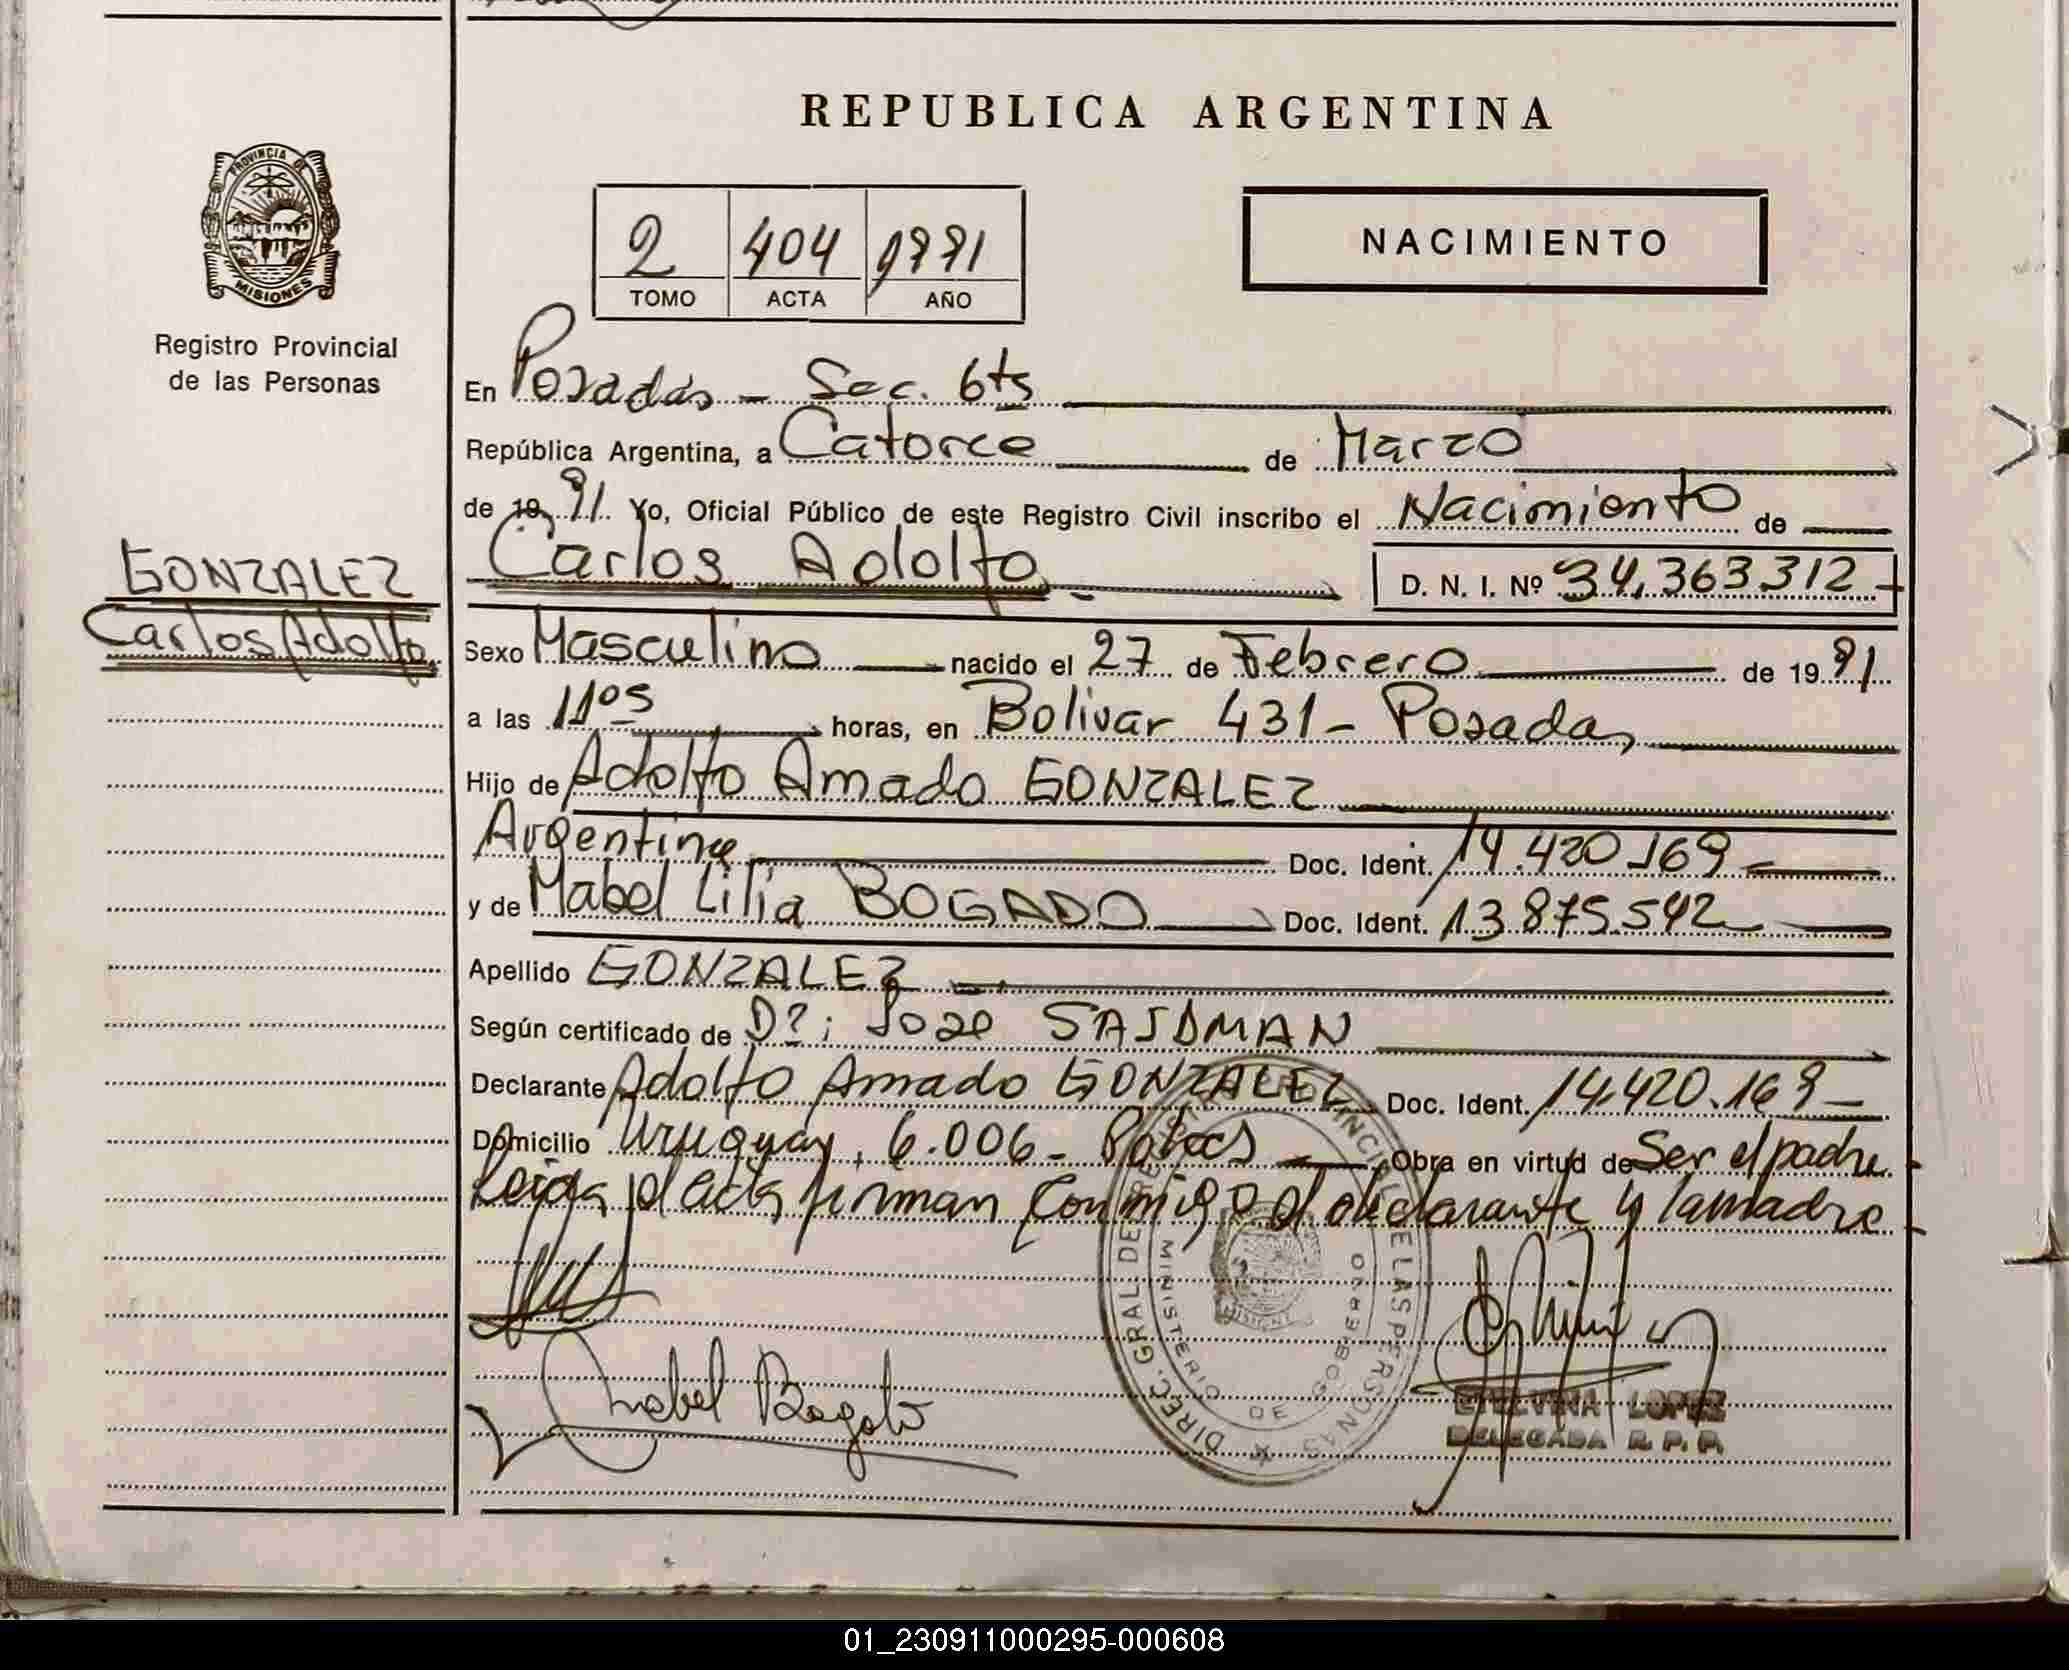 REPUBLICA ARGENTINA
PROVINCIA DE
MISIONES
Registro Provincial
de las Personas
2 404 1991
TOMO ACTA AÑO
NACIMIENTO
En Posadas - Sec. 6ta
República Argentina, a Catorce de Marzo
de 19 91 Yo, Oficial Público de este Registro Civil inscribo el Nacimiento de
GONZALEZ
Carlos Adolfo
Carlos Adolfo D. N. I. Nº 34.363.312-
Sexo Masculino nacido el 27 de Febrero de 19 91
a las 11 05 horas, en Bolivar 431 - Posadas
Hijo de Adolfo Amado GONZALEZ
Argentina Doc. Ident. 14.420.169-
y de Mabel Lilia BOGADO Doc. Ident. 13.875.542
Apellido GONZALEZ -.
Según certificado de Dº: Jose SAJDMAN
Declarante Adolfo Amado GONZALEZ Doc. Ident. 14.420.169-
Domicilio Uruguay 6.006 - Obra en virtud de Ser el padre
Leida el acta firman conmigo el declarante y la madre
Mabel Bogado
DIREC. GRAL DE REGISTRO PROVINCIAL DE LAS PERSONAS
MINISTERIO DE GOBIERNO
ETELVINA LOPEZ
DELEGADA R. P. P.
01_230911000295-000608